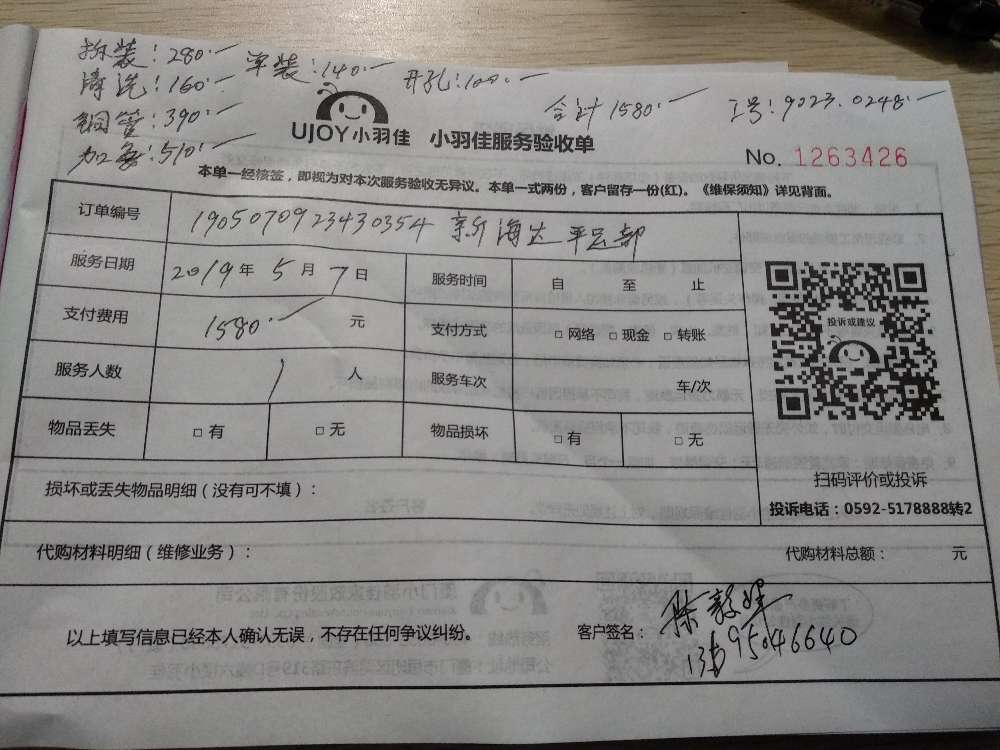 拆装:280.
单装:140.
开孔:100.
清洗:160.
合计1580.
工号:9023.0248.
铜管:390.
加氟:510.
UJOY小羽佳 小羽佳服务验收单
No. 1263426
本单一经核签，即视为对本次服务验收无异议。本单一式两份，客户留存一份(红)。《维保须知》详见背面。
订单编号 1905070923430354 新海达
服务日期 2019年5月7日 服务时间 自 至 止
支付费用 1580. 元 支付方式 □ 网络 □ 现金 □ 转账
投诉或建议
服务人数 1 人 服务车次 车/次
物品丢失 □ 有 □ 无 物品损坏 □ 有 □ 无
扫码评价或投诉
损坏或丢失物品明细（没有可不填）：
投诉电话：0592-5178888转2
代购材料明细（维修业务）： 代购材料总额： 元
以上填写信息已经本人确认无误，不存在任何争议纠纷。 客户签名：
95046640